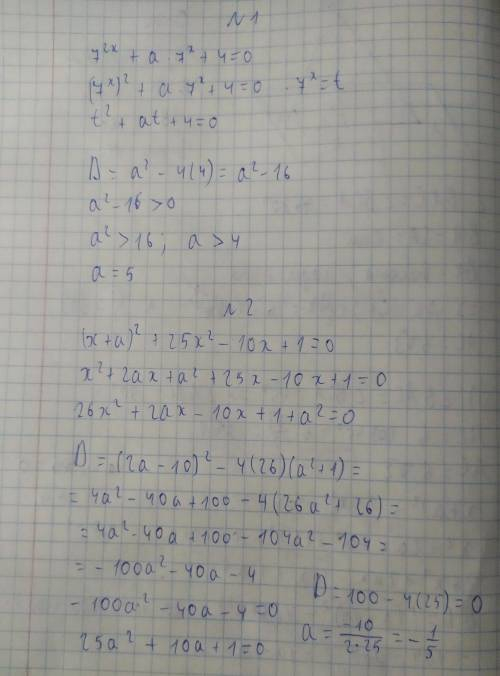 №1
7²ˣ + a · 7ˣ + 4 = 0
(7ˣ)² + a · 7ˣ + 4 = 0 · 7ˣ = t
t² + at + 4 = 0
D = a² - 4(4) = a² - 16
a² - 16 > 0
a² > 16; a > 4
a = 5
№2
(x+a)² + 25x² - 10x + 1 = 0
x² + 2ax + a² + 25x - 10x + 1 = 0
26x² + 2ax - 10x + 1 + a² = 0
D = (2a - 10)² - 4(26)(a² + 1) =
= 4a² - 40a + 100 - 4(26a² + 26) =
= 4a² - 40a + 100 - 104a² - 104 =
= - 100a² - 40a - 4
- 100a² - 40a - 4 = 0
25a² + 10a + 1 = 0
D = 100 - 4(25) = 0
a = -10/2·25 = - 1/5